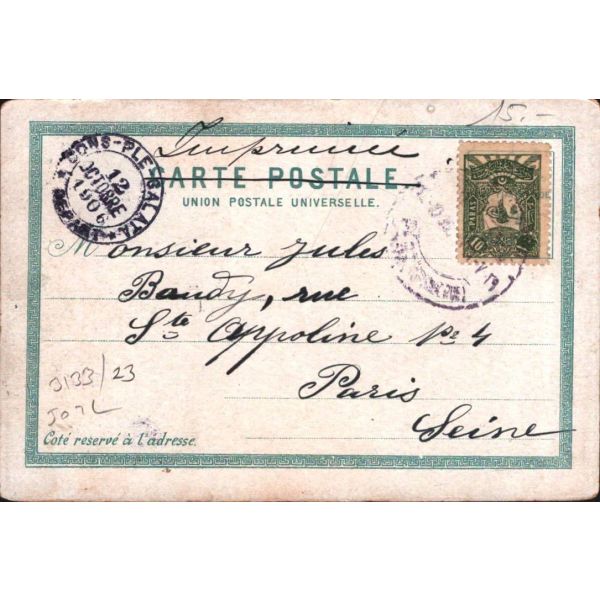 15.-
Imprimé
CARTE POSTALE
UNION POSTALE UNIVERSELLE.
CONS-PLE GALATA
12
OCTOBRE
1906
DEPART
10 PARAS
Monsieur Jules
Baudy, rue
Ste Appoline No 4
Paris
Seine
3133/23
Coté reservé à l'adresse.